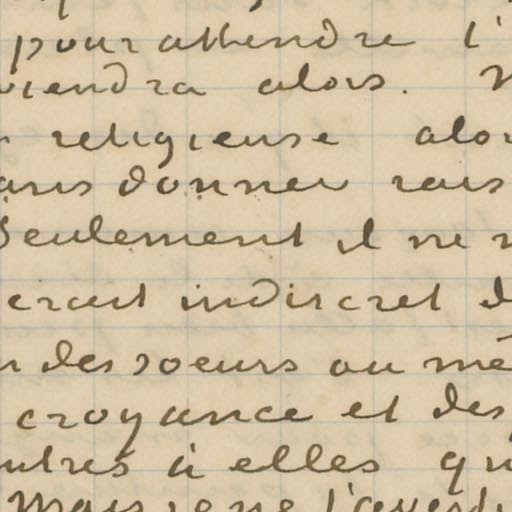 pour attendre l'
viendra alors.
religieuse alor
sans donner
Seulement il ne
erait indiscret d
des soeurs ou mê
croyance et des
utres à elles qu
Mais je ne l'averti